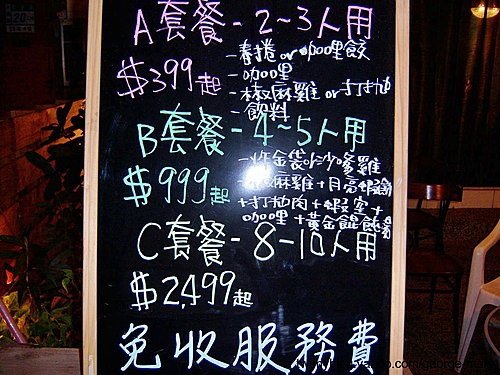 A套餐-2~3人用
$399起
-春捲or咖哩餃
-咖哩
-椒麻雞or打拋
-飲料
B套餐-4~5人用
$999起
-炸金袋/沙嗲雞
麻雞+月亮蝦餅
+打拋肉+蝦
咖哩+黃金餛飩湯
C套餐-8-10人用
$2,499起
免收服務費